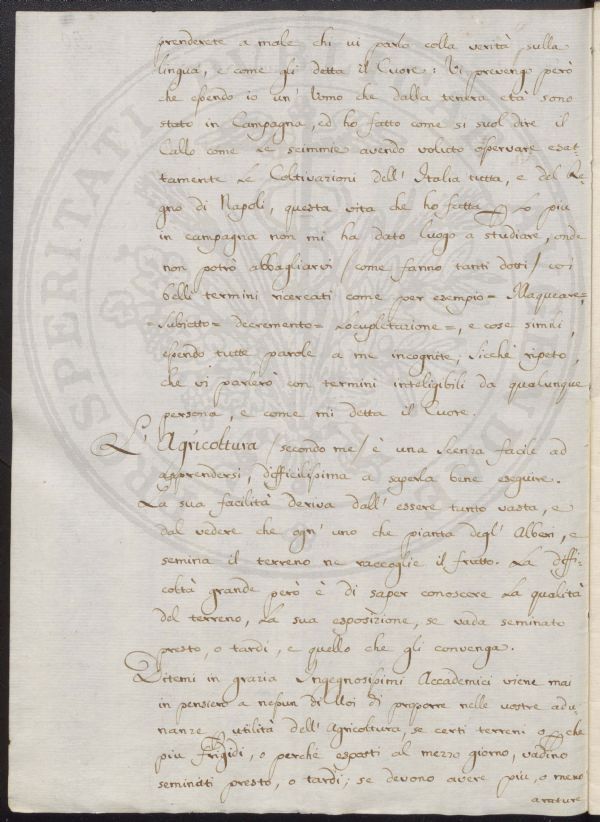 prenderete a male chi vi parla colla verità sulla
lingua, e come gli detta il Cuore: Vi prevengo però
che essendo io un' Uomo che dalla tenera età sono
stato in Campagna, ed ho fatto come si suol dire il
Callo come le scimmie avendo voluto osservare esat-
tamente le Coltivazioni dell' Italia tutta, e del Re-
gno di Napoli, questa vita che ho fatta per lo più
in campagna non mi ha dato luogo a studiare, onde
non potrò abbagliarvi /come fanno tanti dotti/ coi
belli termini ricercati come per esempio=
=Subietto= decremento= Locupletazione=, e cose simili,
essendo tutte parole a me incognite, sicchè ripeto,
che vi parlerò con termini inteligibili da qualunque
persona, e come mi detta il Cuore.
L' Agricoltura /secondo me/ è una Scenza facile ad
apprendersi, difficilissima a saperla bene eseguire.
La sua facilità deriva dall' essere tanto vasta, e
dal vedere che ogn' uno che pianta degl' Alberi, e
semina il terreno ne raccoglie il frutto. La diffi-
coltà grande però è di saper conoscere la qualità
del terreno, la sua esposizione, se vada seminato
presto, o tardi, e quello che gli convenga.
Ditemi in grazia Ingegnosissimi Accademici viene mai
in pensiero a nessun di Voi di proporre nelle vostre adu-
nanze per utilità dell' Agricoltura, se certi terreni o perche
più frigidi, o perchè esposti al mezzo giorno, vadino
seminati presto, o tardi; se devono avere più, o meno
arature
PROSPERITATI